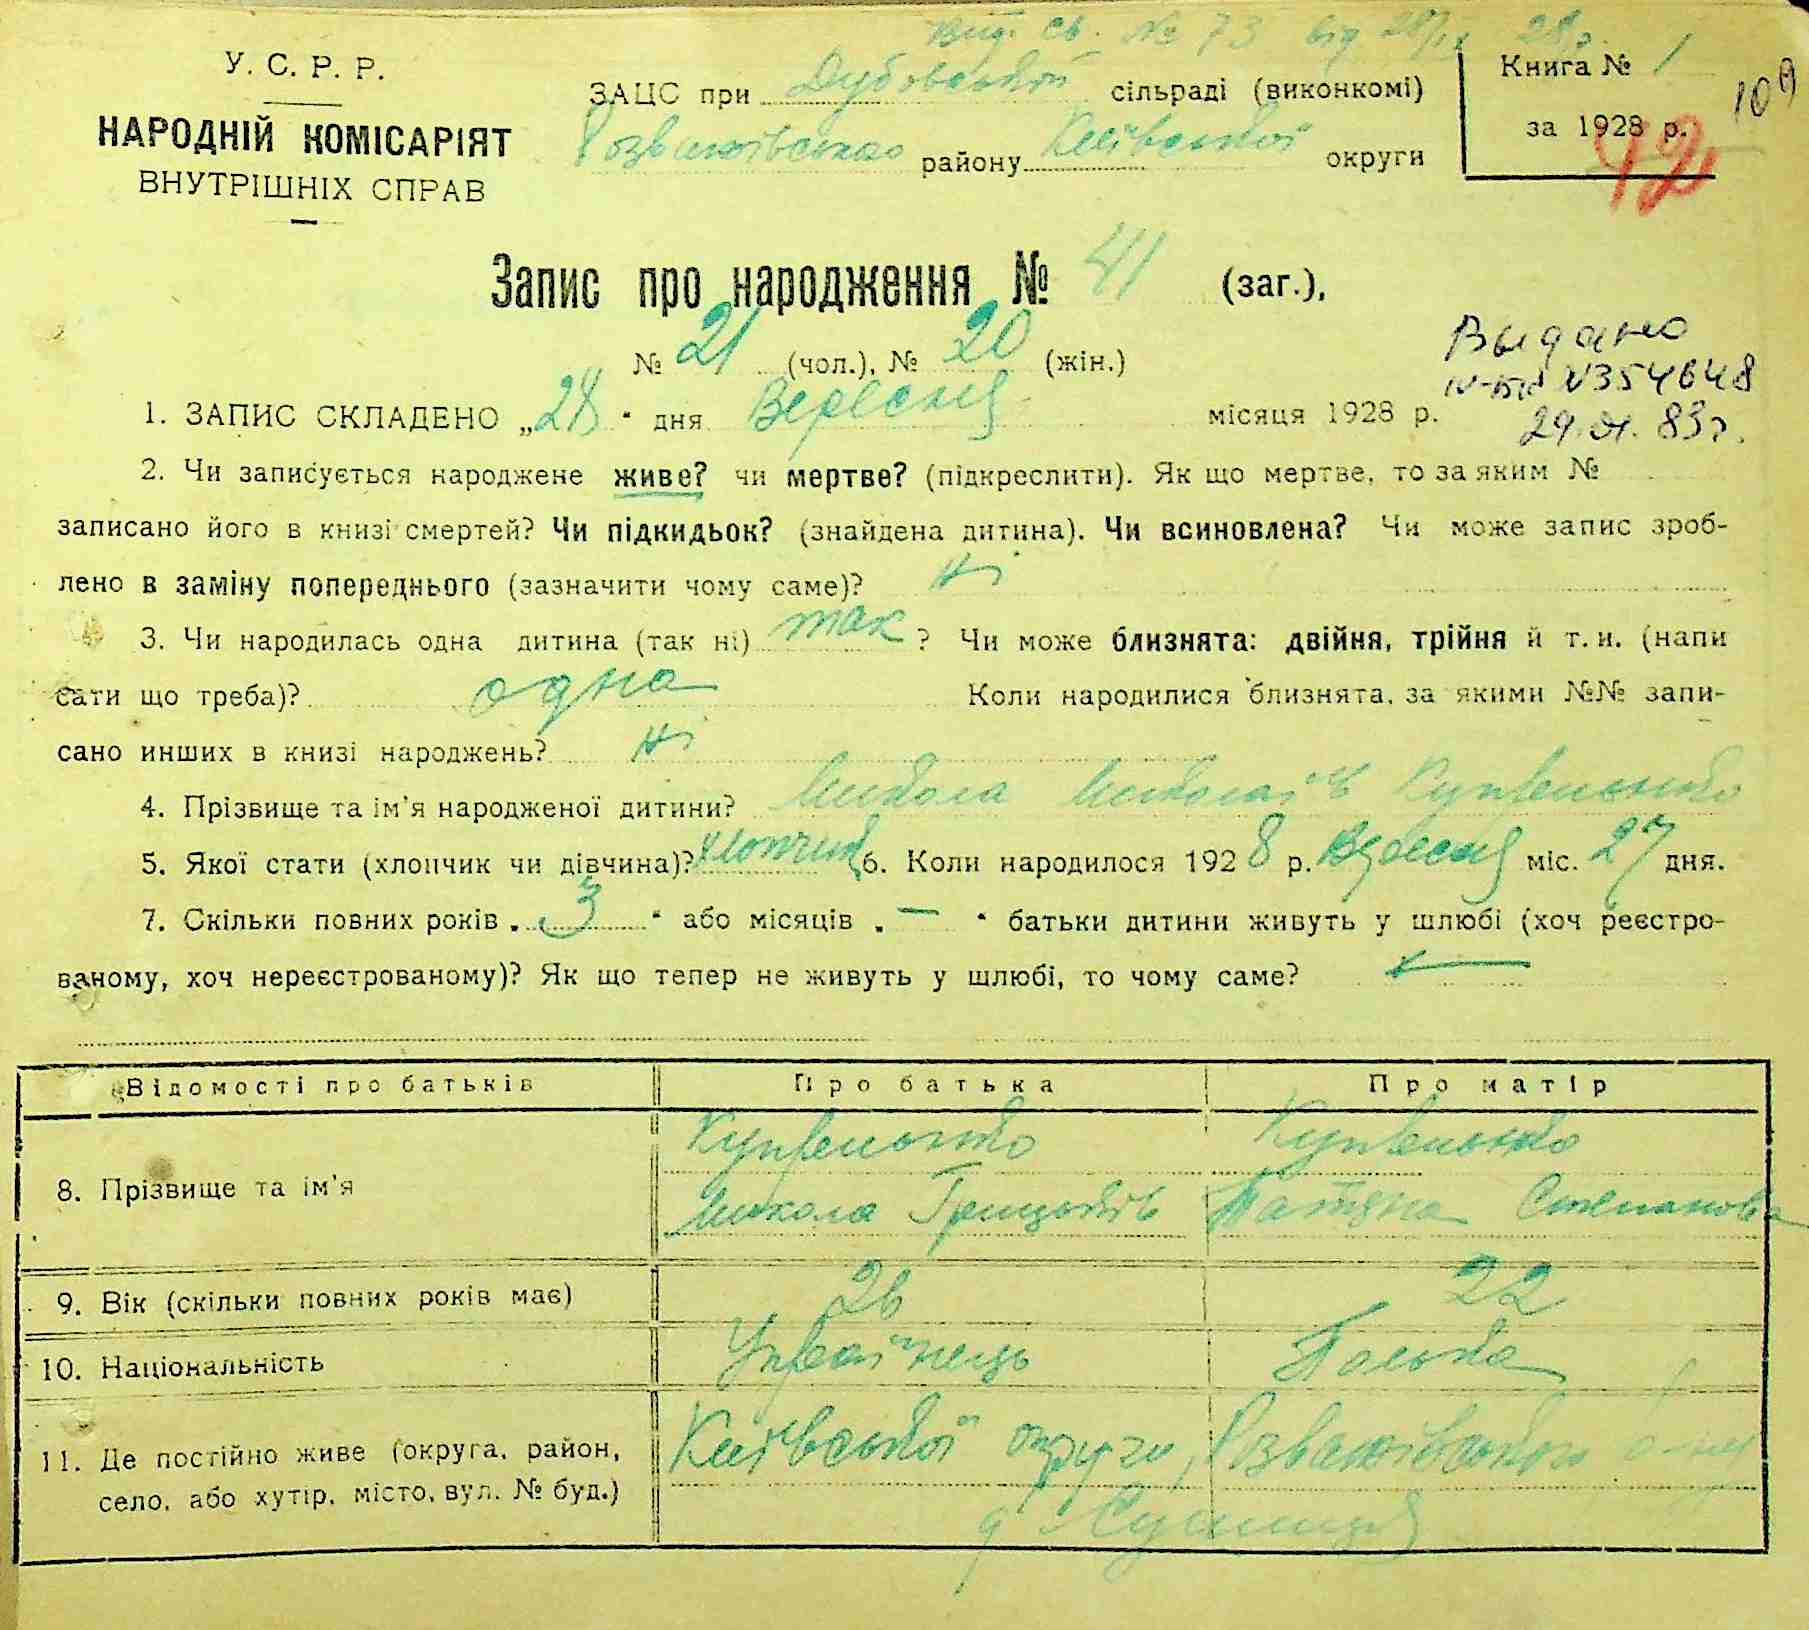 Вид. св. № 73 від 28/IX 28 р.
У. С. Р. Р.
НАРОДНІЙ КОМІСАРІЯТ
ВНУТРІШНІХ СПРАВ
ЗАЦС при Дубовської сільраді (виконкомі)
Розважівського району Київської округи
Книга № 1
за 1928 р.
109
42
Запис про народження № 41 (заг.),
№ 21 (чол.), № 20 (жін.)
Выдано
N354648
83 г.
1. ЗАПИС СКЛАДЕНО „28" дня Вересня місяця 1928 р.
2. Чи записується народжене живе? чи мертве? (підкреслити). Як що мертве, то за яким №
записано його в книзі смертей? Чи підкидьок? (знайдена дитина). Чи всиновлена? Чи може запис зроб-
лено в заміну попереднього (зазначити чому саме)? ні
3. Чи народилась одна дитина (так ні) так ? Чи може близнята: двійня, трійня й т. и. (напи
сати що треба)? одна Коли народилися близнята, за якими №№ запи-
сано инших в книзі народжень? ні
4. Прізвище та ім'я народженої дитини? Микола Миколаїв Купрієнко
5. Якої стати (хлопчик чи дівчина)? хлопчик 6. Коли народилося 1928 р. Вересня міс. 27 дня.
7. Скільки повних років „ 3 " або місяців „ — " батьки дитини живуть у шлюбі (хоч реєстро-
ваному, хоч нереєстрованому)? Як що тепер не живуть у шлюбі, то чому саме? —
Відомості про батьків Про батька Про матір
8. Прізвище та ім'я
Купрієнко Купрієнко
Микола Грицьків Татяна Степанова
9. Вік (скільки повних років має) 26 22
10. Національність Українець Полька
11. Де постійно живе (округа, район,
село, або хутір, місто, вул. № буд.)
Київської округи, Розважівського р-ну